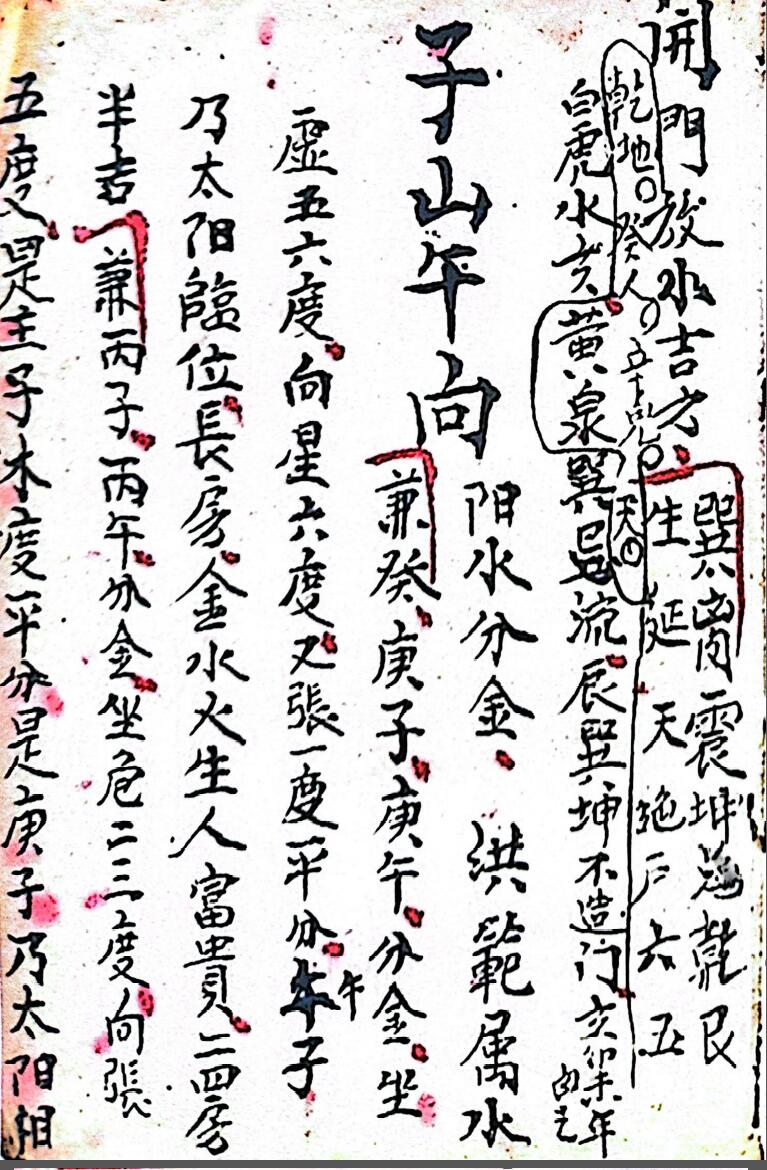 開門放水吉方
巽离震坤兑乾艮
生延天絶尸六五
乾地癸人
天
白虎水亥黄泉巽巳流辰巽坤不造门亥年
子山午向
阳水分金洪範属水
兼癸庚子庚午分金坐
虛五六度向星六度又張一度平分午子
乃太阳臨位長房金水火生人富貴二四房
半吉兼丙子丙午分金坐危二三度向張
五度是主子木度平分是庚子乃太阳相